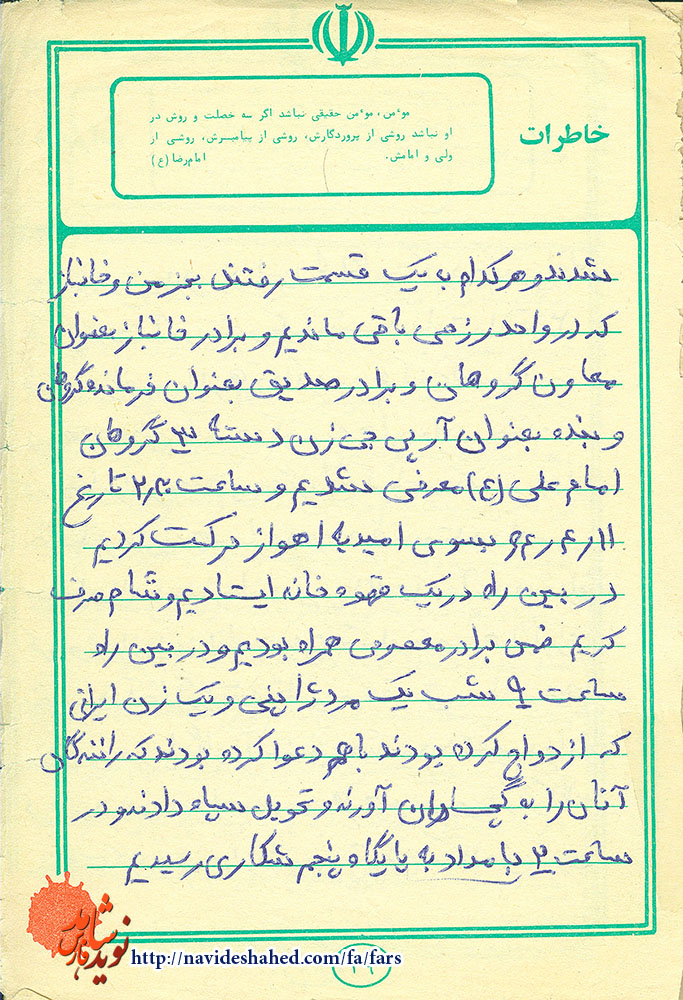 خاطرات
موءمن، موءمن حقیقی نباشد اگر سه خصلت و روش در
او نباشد روشی از پروردگارش، روشی از پیامبرش، روشی از
ولی و امامش. امام‌رضا (ع)
شدند و هر کدام با یک قسمت رفتند بجز من و خانباز
که در واحد رزمی باقی ماندیم و برادر خانباز بعنوان
معاون گروهان و برادر صدیق بعنوان فرمانده گروهان
و بنده بعنوان آر پی جی زن دسته ۳ گروهان
امام علی (ع) معرفی شدیم و ساعت تاریخ
بسوی امیدیه اهواز حرکت کردیم
در بین راه در یک قهوه خانه ایستادیم و شام صرف
کردیم ضمن برادر معصومی همراه بودیم و در بین راه
ساعت ۹ شب یک مرد ژاپنی و یک زن ایرانی
که ازدواج کرده بودند با هم دعوا کرده بودند که رانندگان
آنان را به گچساران آورند و تحویل سپاه دادند و در
ساعت ۳ بامداد به پایگاه پنجم شکاری رسیدیم
نوید شاهد فارس
http://navideshahed.com/fa/fars